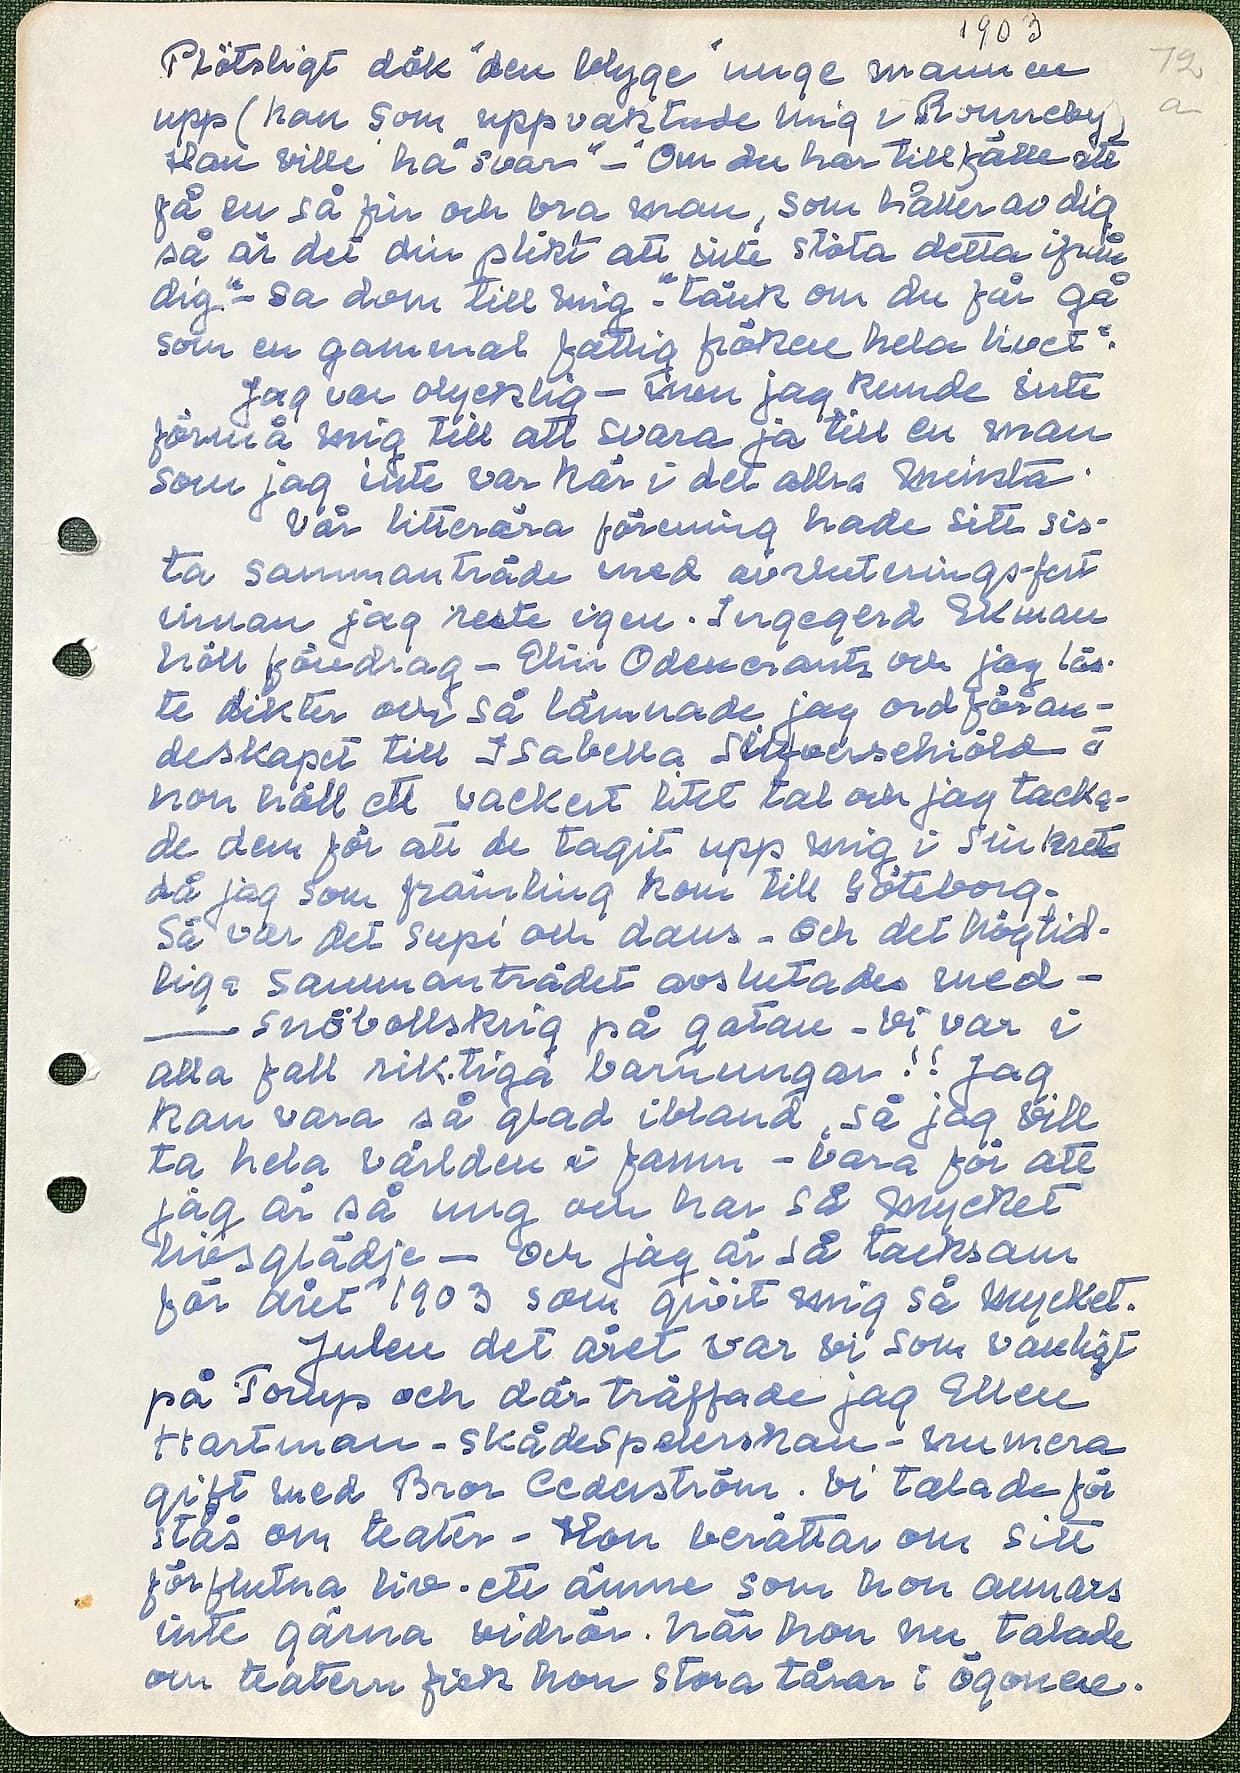 1903
72
a
Plötsligt dök "den blyge" unge mannen
upp (han som uppvaktade mig i Ronneby)
Han ville ha "svar" - "Om du har tillfälle att
få en så fin och bra man, som håller av dig
så är det din plikt att inte stöta detta ifrån
dig" - sa dom till mig - "tänk om du får gå
som en gammal fattig fröken hela livet".
Jag var olycklig - men jag kunde inte
förmå mig till att svara ja till en man
som jag inte var kär i det allra minsta.
Vår litterära förening hade sitt sis-
ta sammanträde med avslutningsfest
innan jag reste igen. Ingegerd Ekman
höll föredrag - Elin Odencrants och jag läs-
te dikter och så lämnade jag ordföran-
deskapet till Isabella Silfverschiöld o
hon höll ett vackert litet tal och jag tacka-
de dem för att de tagit upp mig i sin krets
då jag som främling kom till Göteborg.
Så var det supé och dans - Och det högtid-
liga sammanträdet avslutades med -
— snöbollskrig på gatan - Vi var i
alla fall riktiga barnungar!! Jag
kan vara så glad ibland, så jag vill
ta hela världen i famn - bara för att
jag är så ung och har så mycket
livsglädje — och jag är så tacksam
för året 1903 som givit mig så mycket.
Julen det året var vi som vanligt
på Torup och där träffade jag Ellen
Hartman - skådespelerskan - numera
gift med Bror Cederström. Vi talade för-
stås om teater - Hon berättar om sitt
förflutna liv - ett ämne som hon annars
inte gärna vidrör. När hon nu talade
om teatern fick hon stora tårar i ögonen.